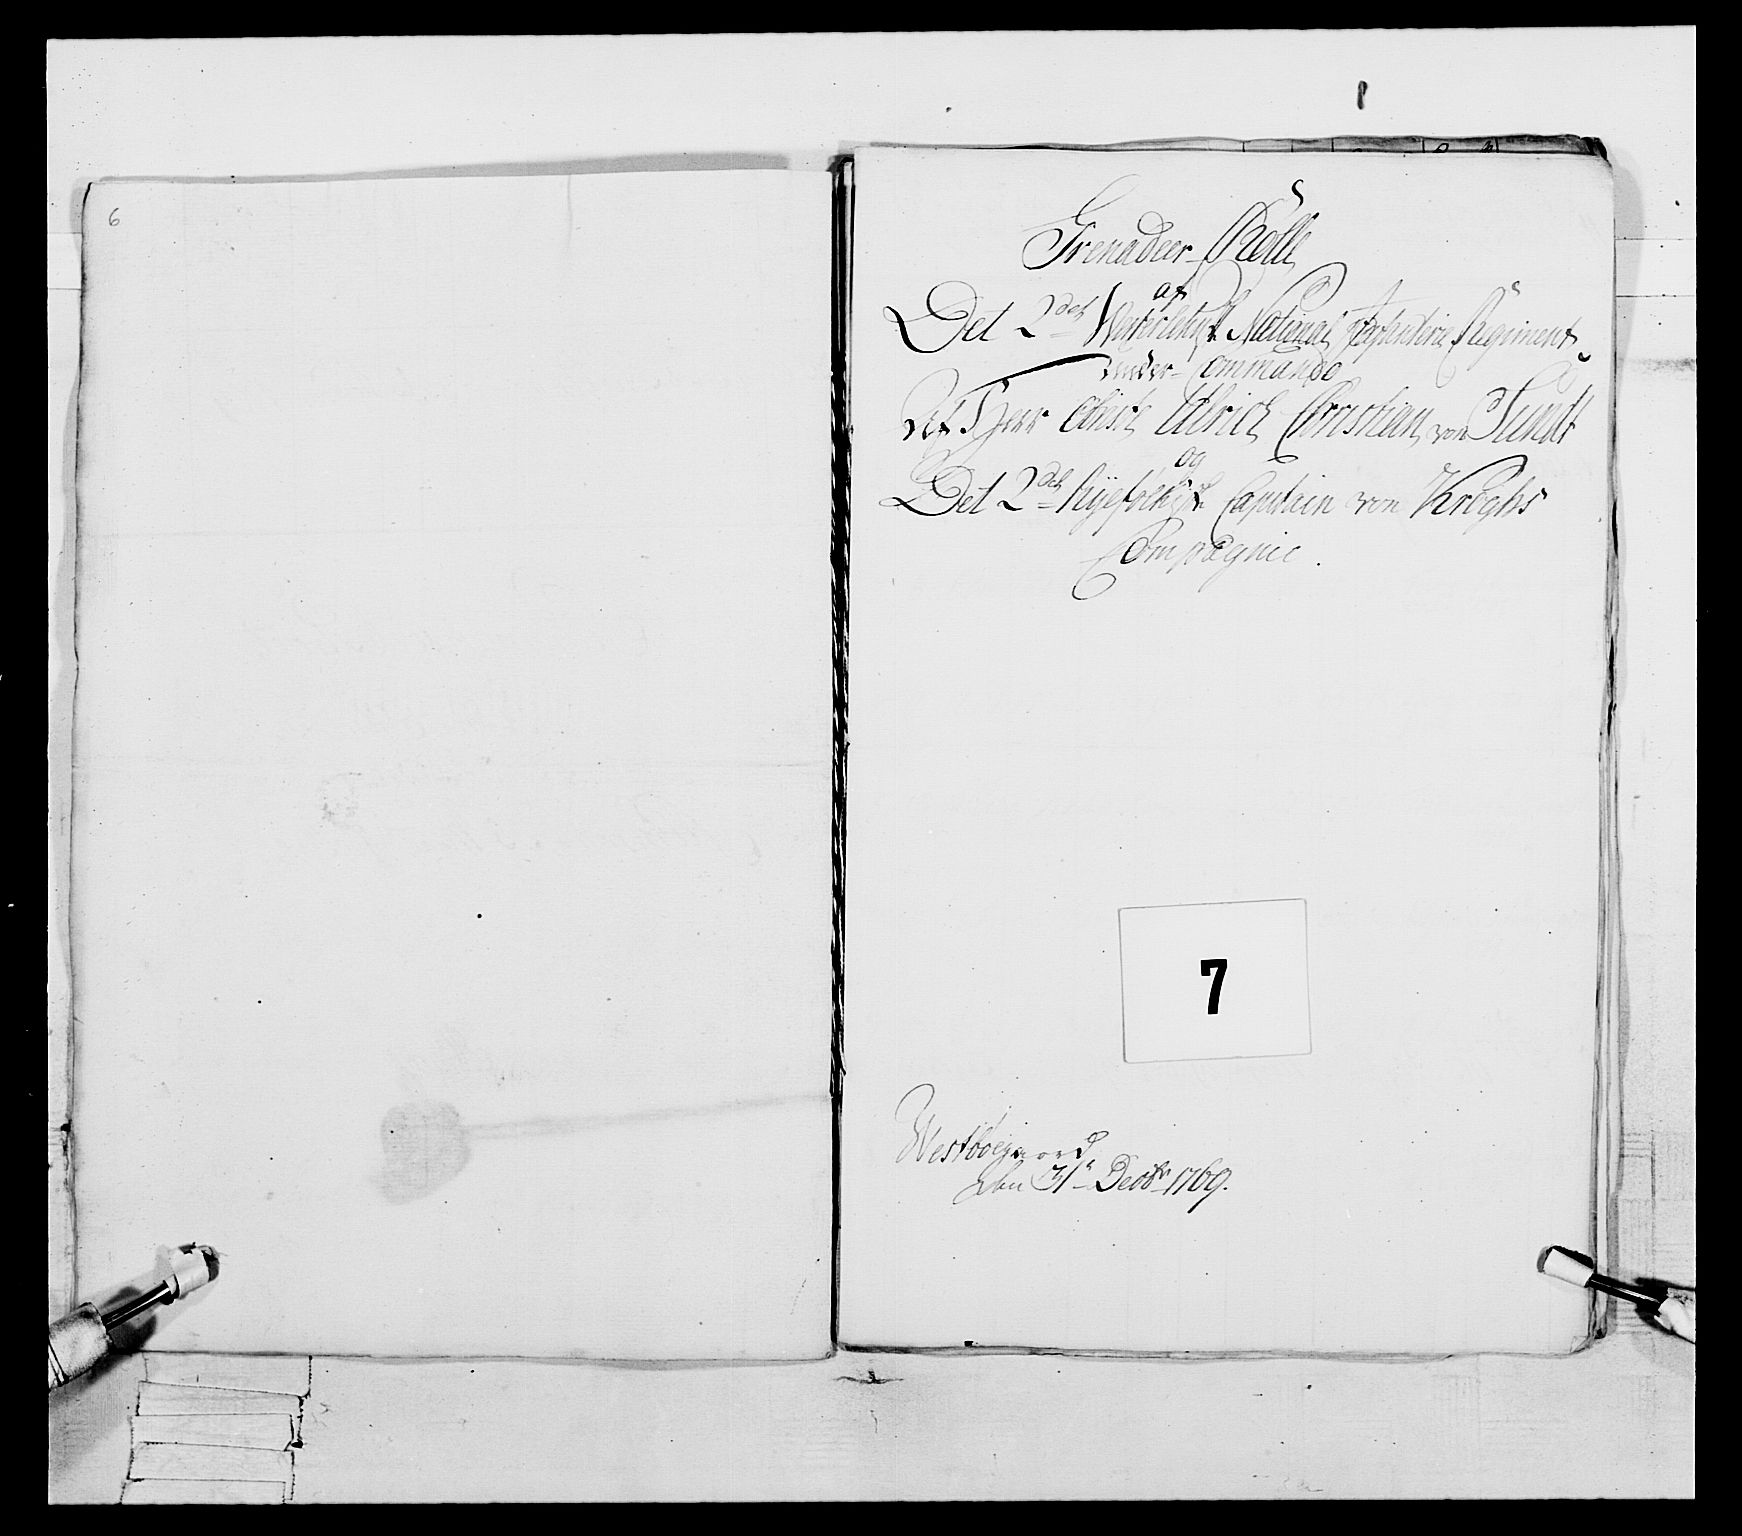 6
Grenadeer Rolle
af
Det 2det Westerlehnske National Infanterie Regiment
under Commando
Af Herr Obriste Ulrich Christian von Sundt
og
Det 2det Ryefylkiske Capitain von Kroghs
Compagnie.
7
Westbøegaard
den 31t Decbr 1769.